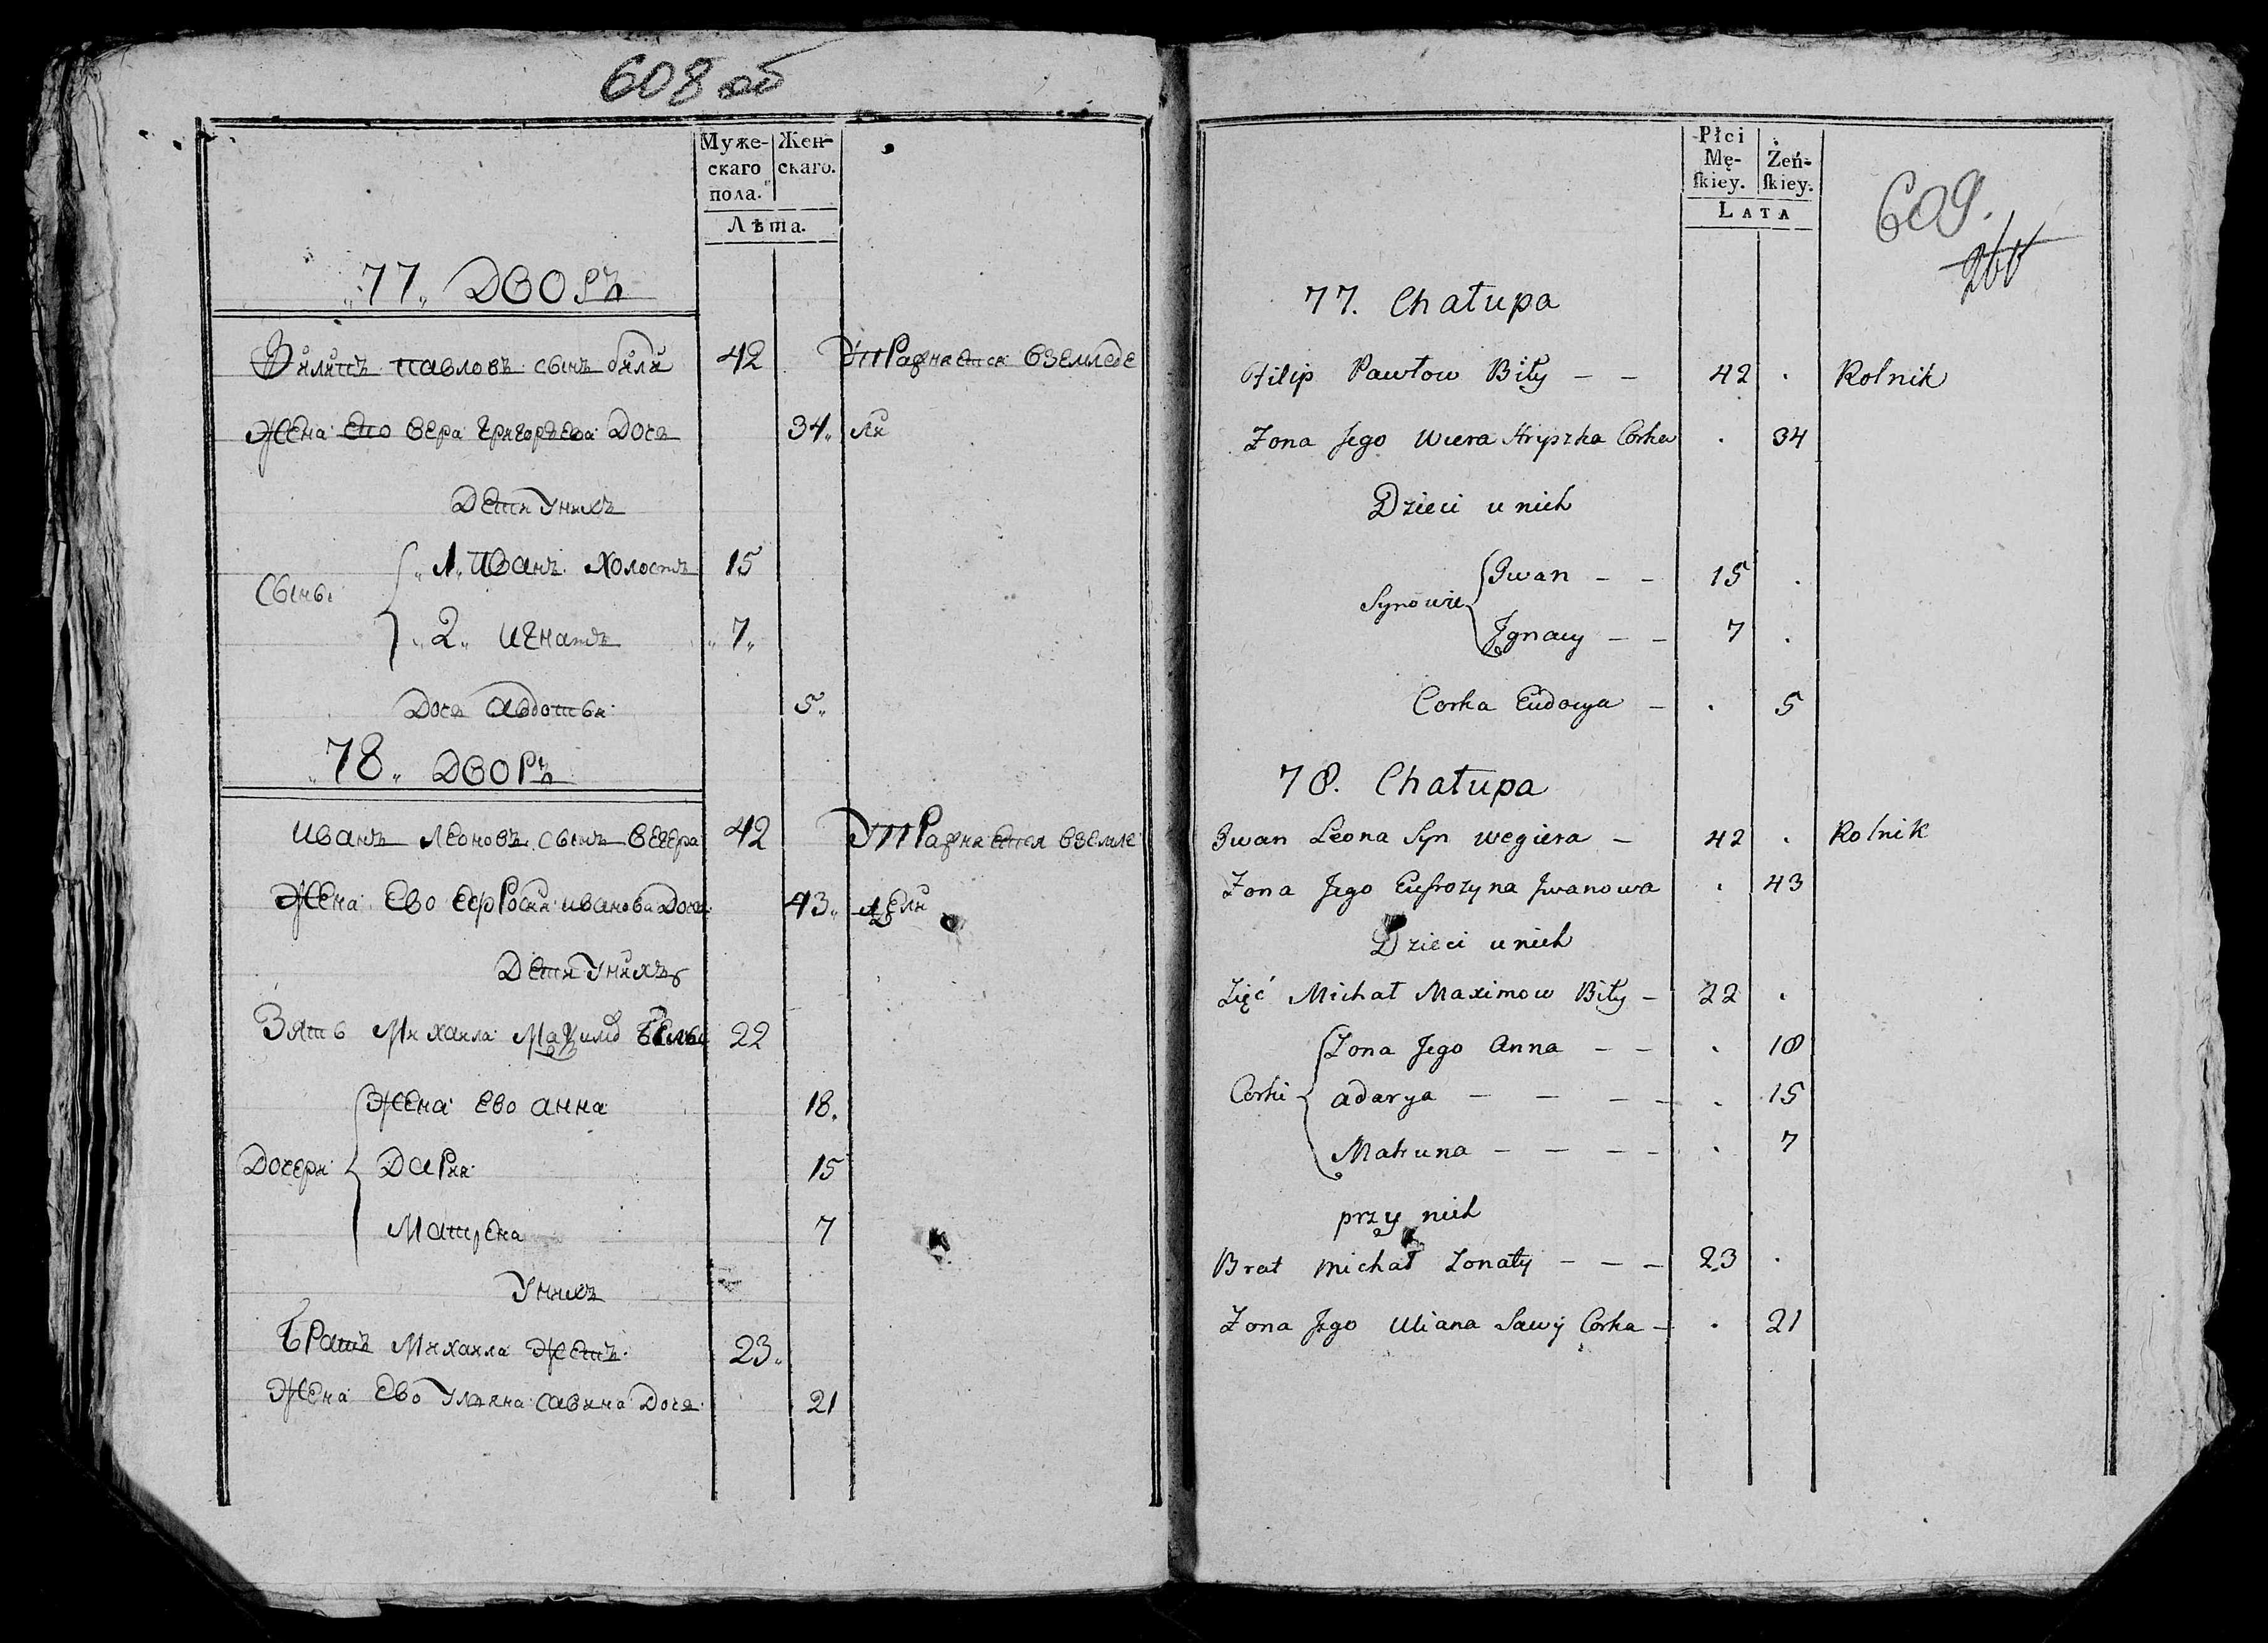 608 об
Муже-
скаго
пола.
Жен-
скаго.
Лѣта.
„77„ Дворъ
Филипъ павловъ сынъ били 42 Упражнается вземледе
Жена ево вера григорьева Дочь 34„ ли
Дети Унихъ
Сыны
„1„ Иванъ Холостъ 15
„2„ Игнатъ „7„
Дочь авдотья 5„
„78„ Дворъ
Иванъ Леоновъ сынъ вегера 42 Упражнается вземле
Жена Ево ефросиня иванова Доч 43„ дели
Дети Унихъ
Зять Михаила Максимо Белы 22
Дочери
Жена Ево анна 18.
Даря 15
Матрена 7
Унихъ
Братъ Михаила Жетъ 23„
Жена Ево Ульяна савина Дочь 21
Płci
Mę-
ſkiey.
Żeń-
ſkiey.
LATA
609.
77. Chałupa
Filip Pawłow Biły – – 42 . Rolnik
Zona Jego Wiera Hryszka Corka . 34
Dzieci u nich
Synowie
Jwan – – 15 .
Jgnacy – – 7 .
Corka Eudocya – . 5
78. Chałupa
Jwan Leona Syn wegiera – 42 . Rolnik
Zona Jego Eufrozyna Jwanowa . 43
Dzieci u nich
Zięć Michał Maximow Biły – 22 .
Corki
Zona Jego Anna – – . 18
adarya – – – – . 15
Matruna – – – – . 7
przy nich
Brat michał Zonaty – – – 23 .
Zona Jego Uliana Sawy Corka – . 21